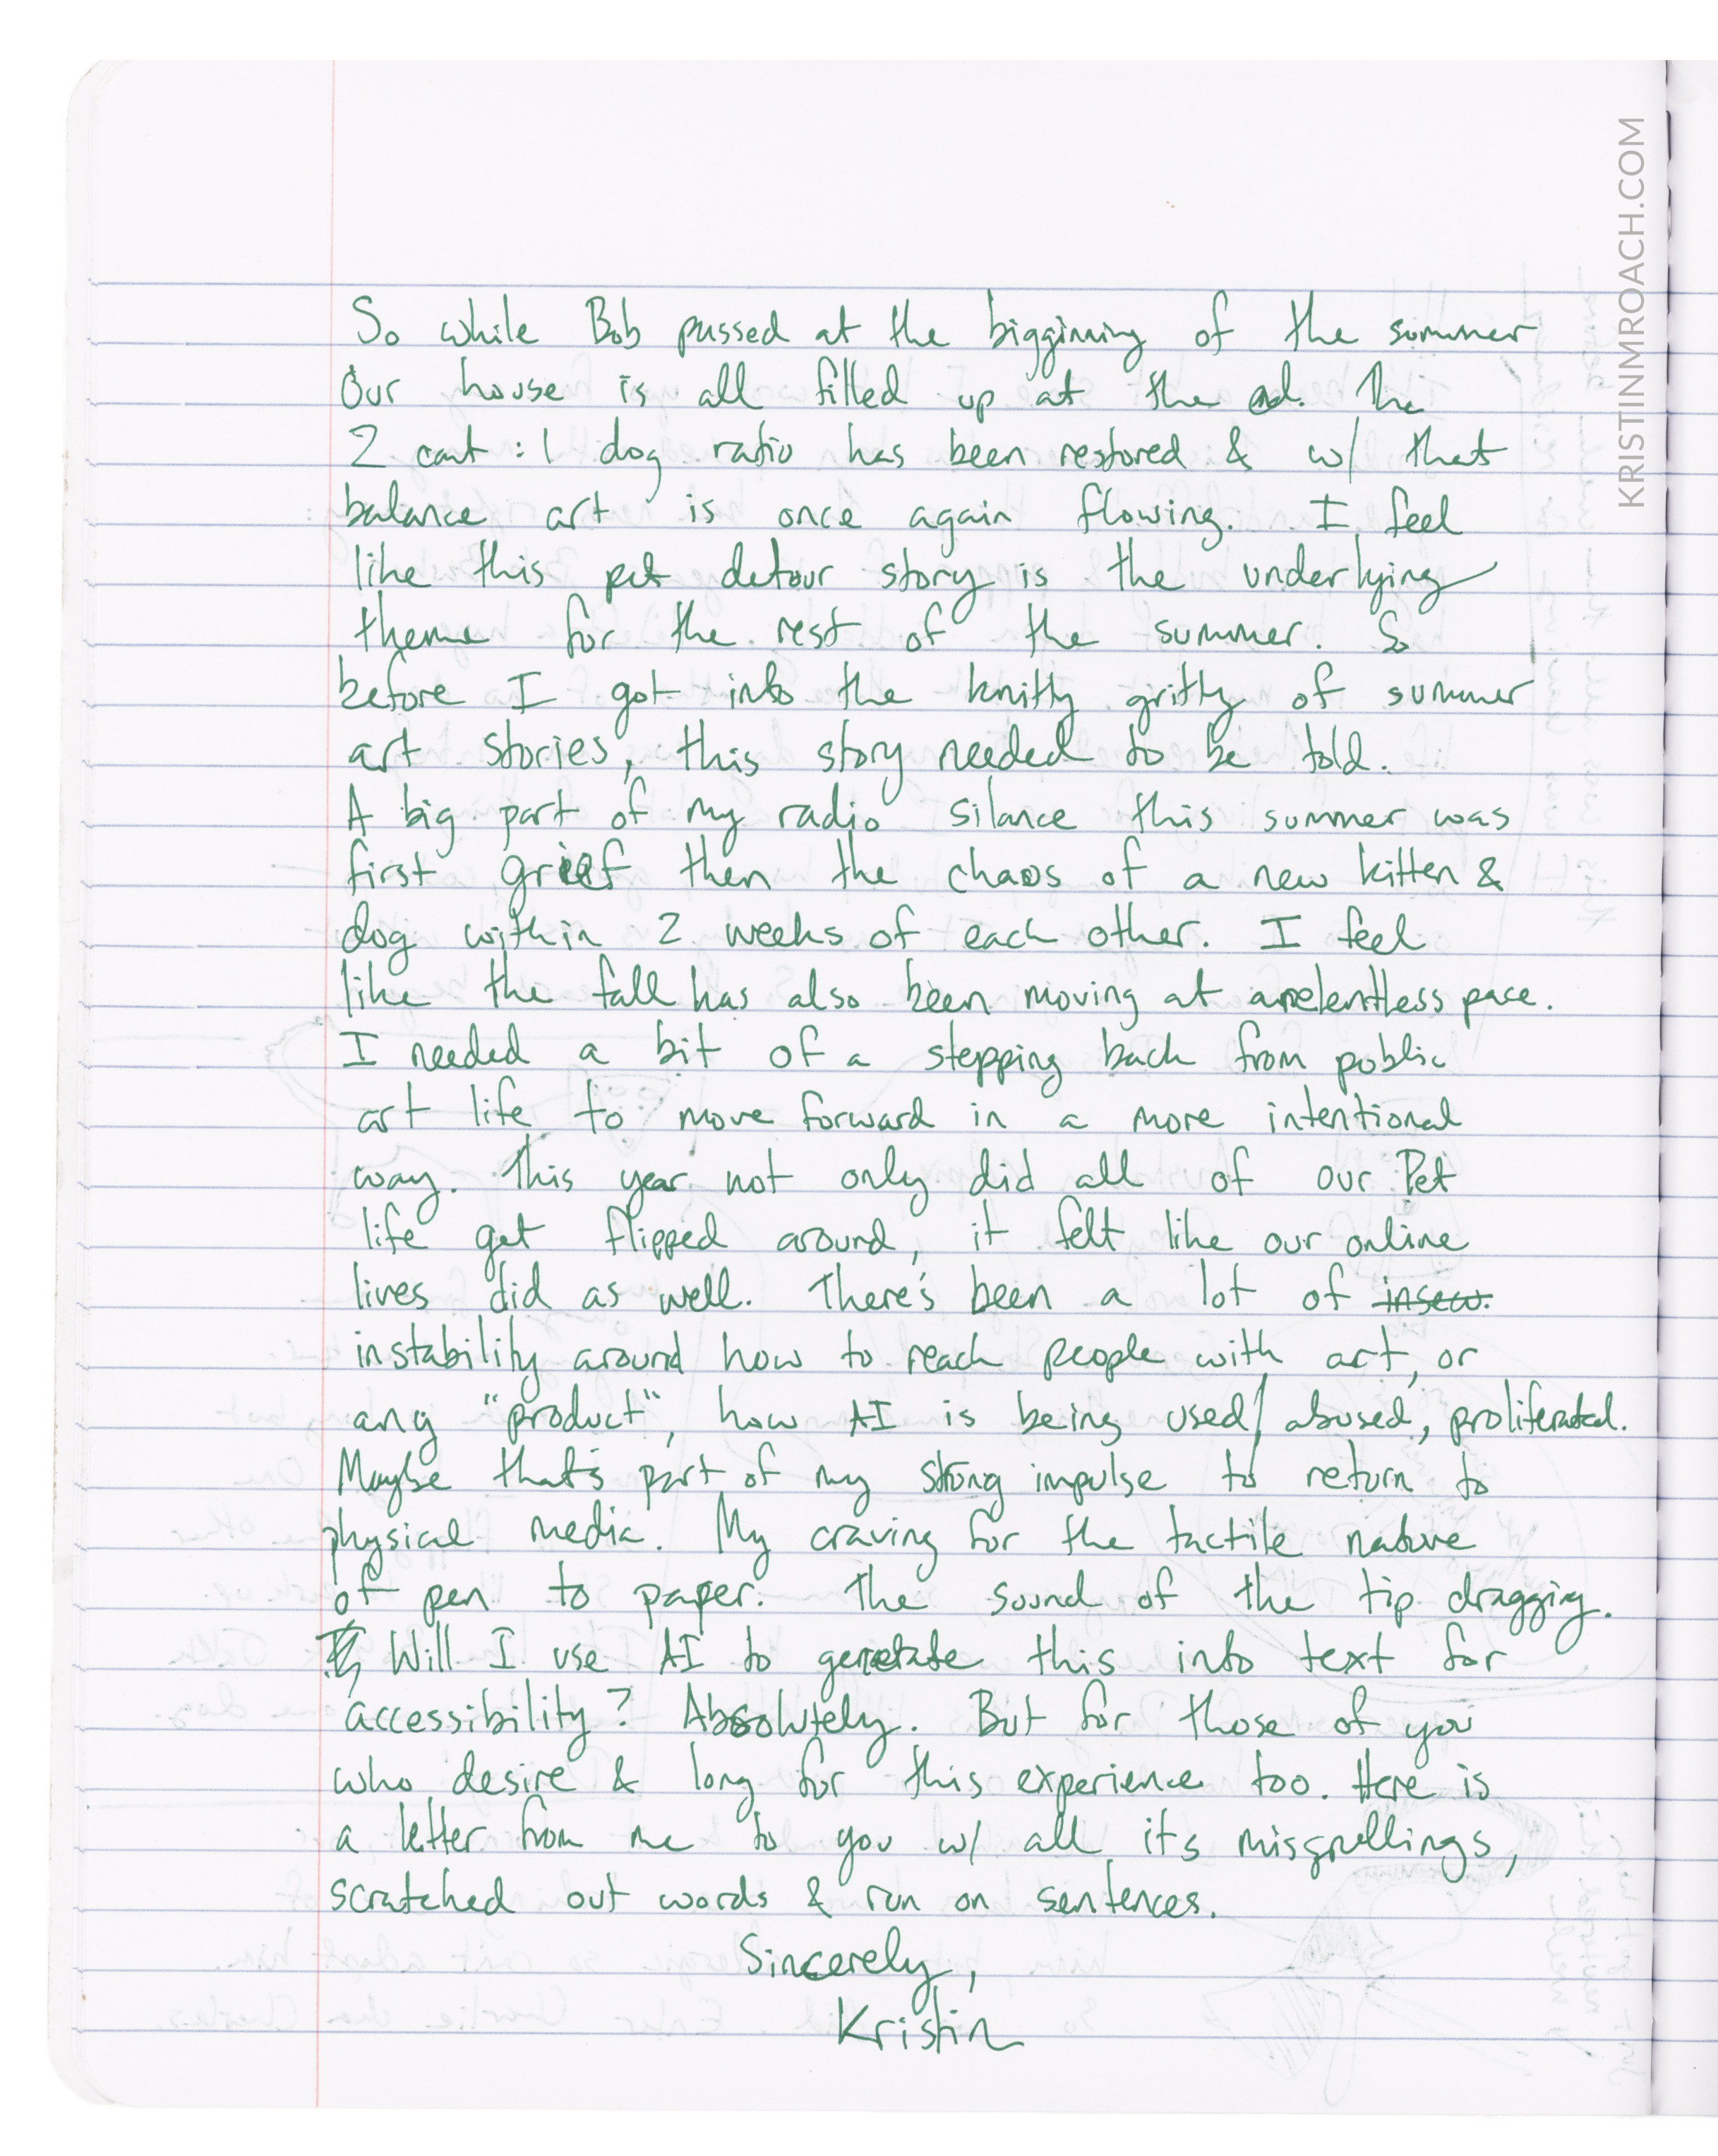 So while Bob passed at the bigginning of the summer
Our house is all filled up at the end. The
2 cat : 1 dog ratio has been restored & w/ that
balance art is once again flowing. I feel
like this pet detour story is the underlying
theme for the rest of the summer. So
before I got into the knitty gritty of summer
art stories, this story needed to be told.
A big part of my radio silance this summer was
first grief then the chaos of a new kitten &
dog within 2 weeks of each other. I feel
like the fall has also been moving at a relentless pace.
I needed a bit of a stepping back from public
art life to move forward in a more intentional
way. This year not only did all of our Pet
life get flipped around, it felt like our online
lives did as well. There's been a lot of insecu.
instability around how to reach people with art, or
any "product", how AI is being used/abused, proliferated.
Maybe that's part of my strong impulse to return to
physical media. My craving for the tactile nature
of pen to paper. The sound of the tip dragging.
Will I use AI to generate this into text for
accessibility? Absolutely. But for those of you
who desire & long for this experience too. Here is
a letter from me to you w/ all its misspellings,
scratched out words & run on sentences.
Sincerely,
Kristin
KRISTINMROACH.COM